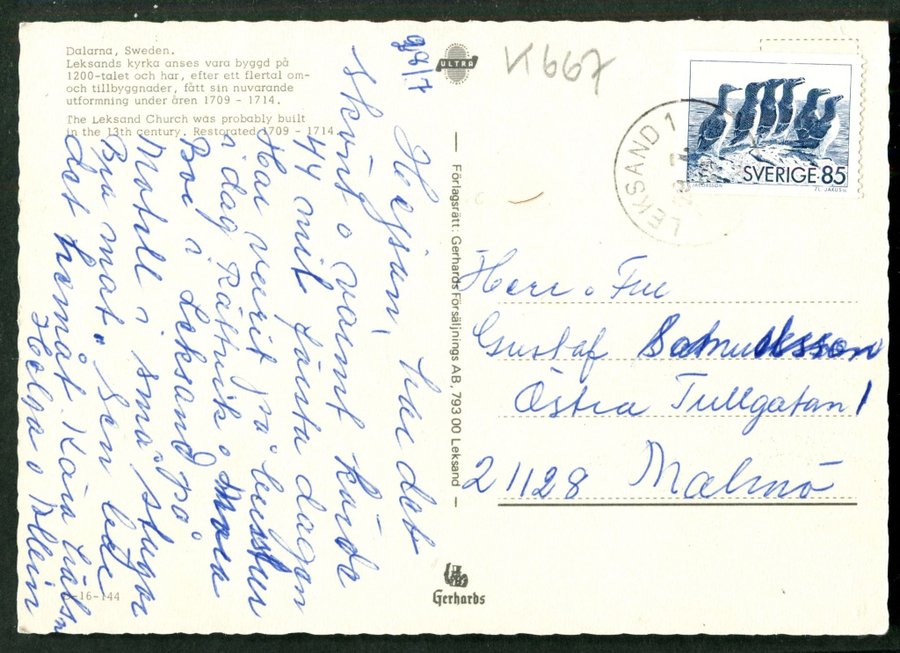 Dalarna, Sweden.
Leksands kyrka anses vara byggd på
1200-talet och har, efter ett flertal om-
och tillbyggnader, fått sin nuvarande
utformning under åren 1709 - 1714.
The Leksand Church was probably built
in the 13th century. Restored 1709 - 1714
8/7
Hejsan, har det
skönt o varmt körde
44 mil första dagen
Har varit på
i dag Rättvik o Mora
Bor i Leksand på
Motell i små stugor
Bra mat. Sen bär
det hemåt Kära
Helga o
-16-144
ULTRA
Förlagsrätt: Gerhards Försäljnings AB, 793 00 Leksand
Gerhards
K667
LEKSAND 1
SVERIGE 85
Herr o Fru
Gustaf Samuelsson
Östra Tullgatan 1
21128 Malmö